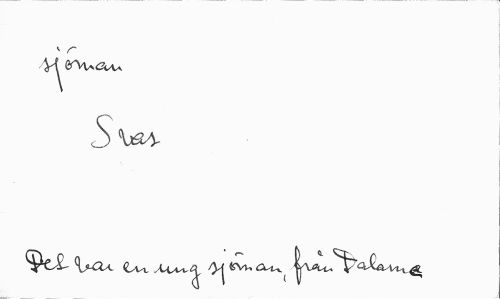 sjöman
Svas
Det var en ung sjöman, från Dalarne